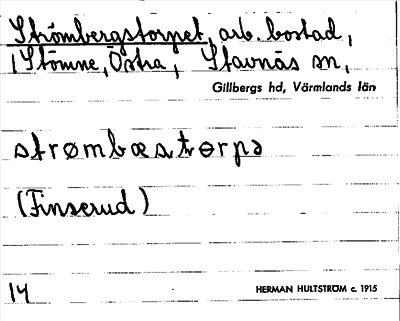 Strömbergstorpet, arb. bostad,
1 Stömne, Östra, Stavnäs sn,
Gillbergs hd, Värmlands län
strømbæstɵrpə
(Finserud)
14
HERMAN HULTSTRÖM c. 1915